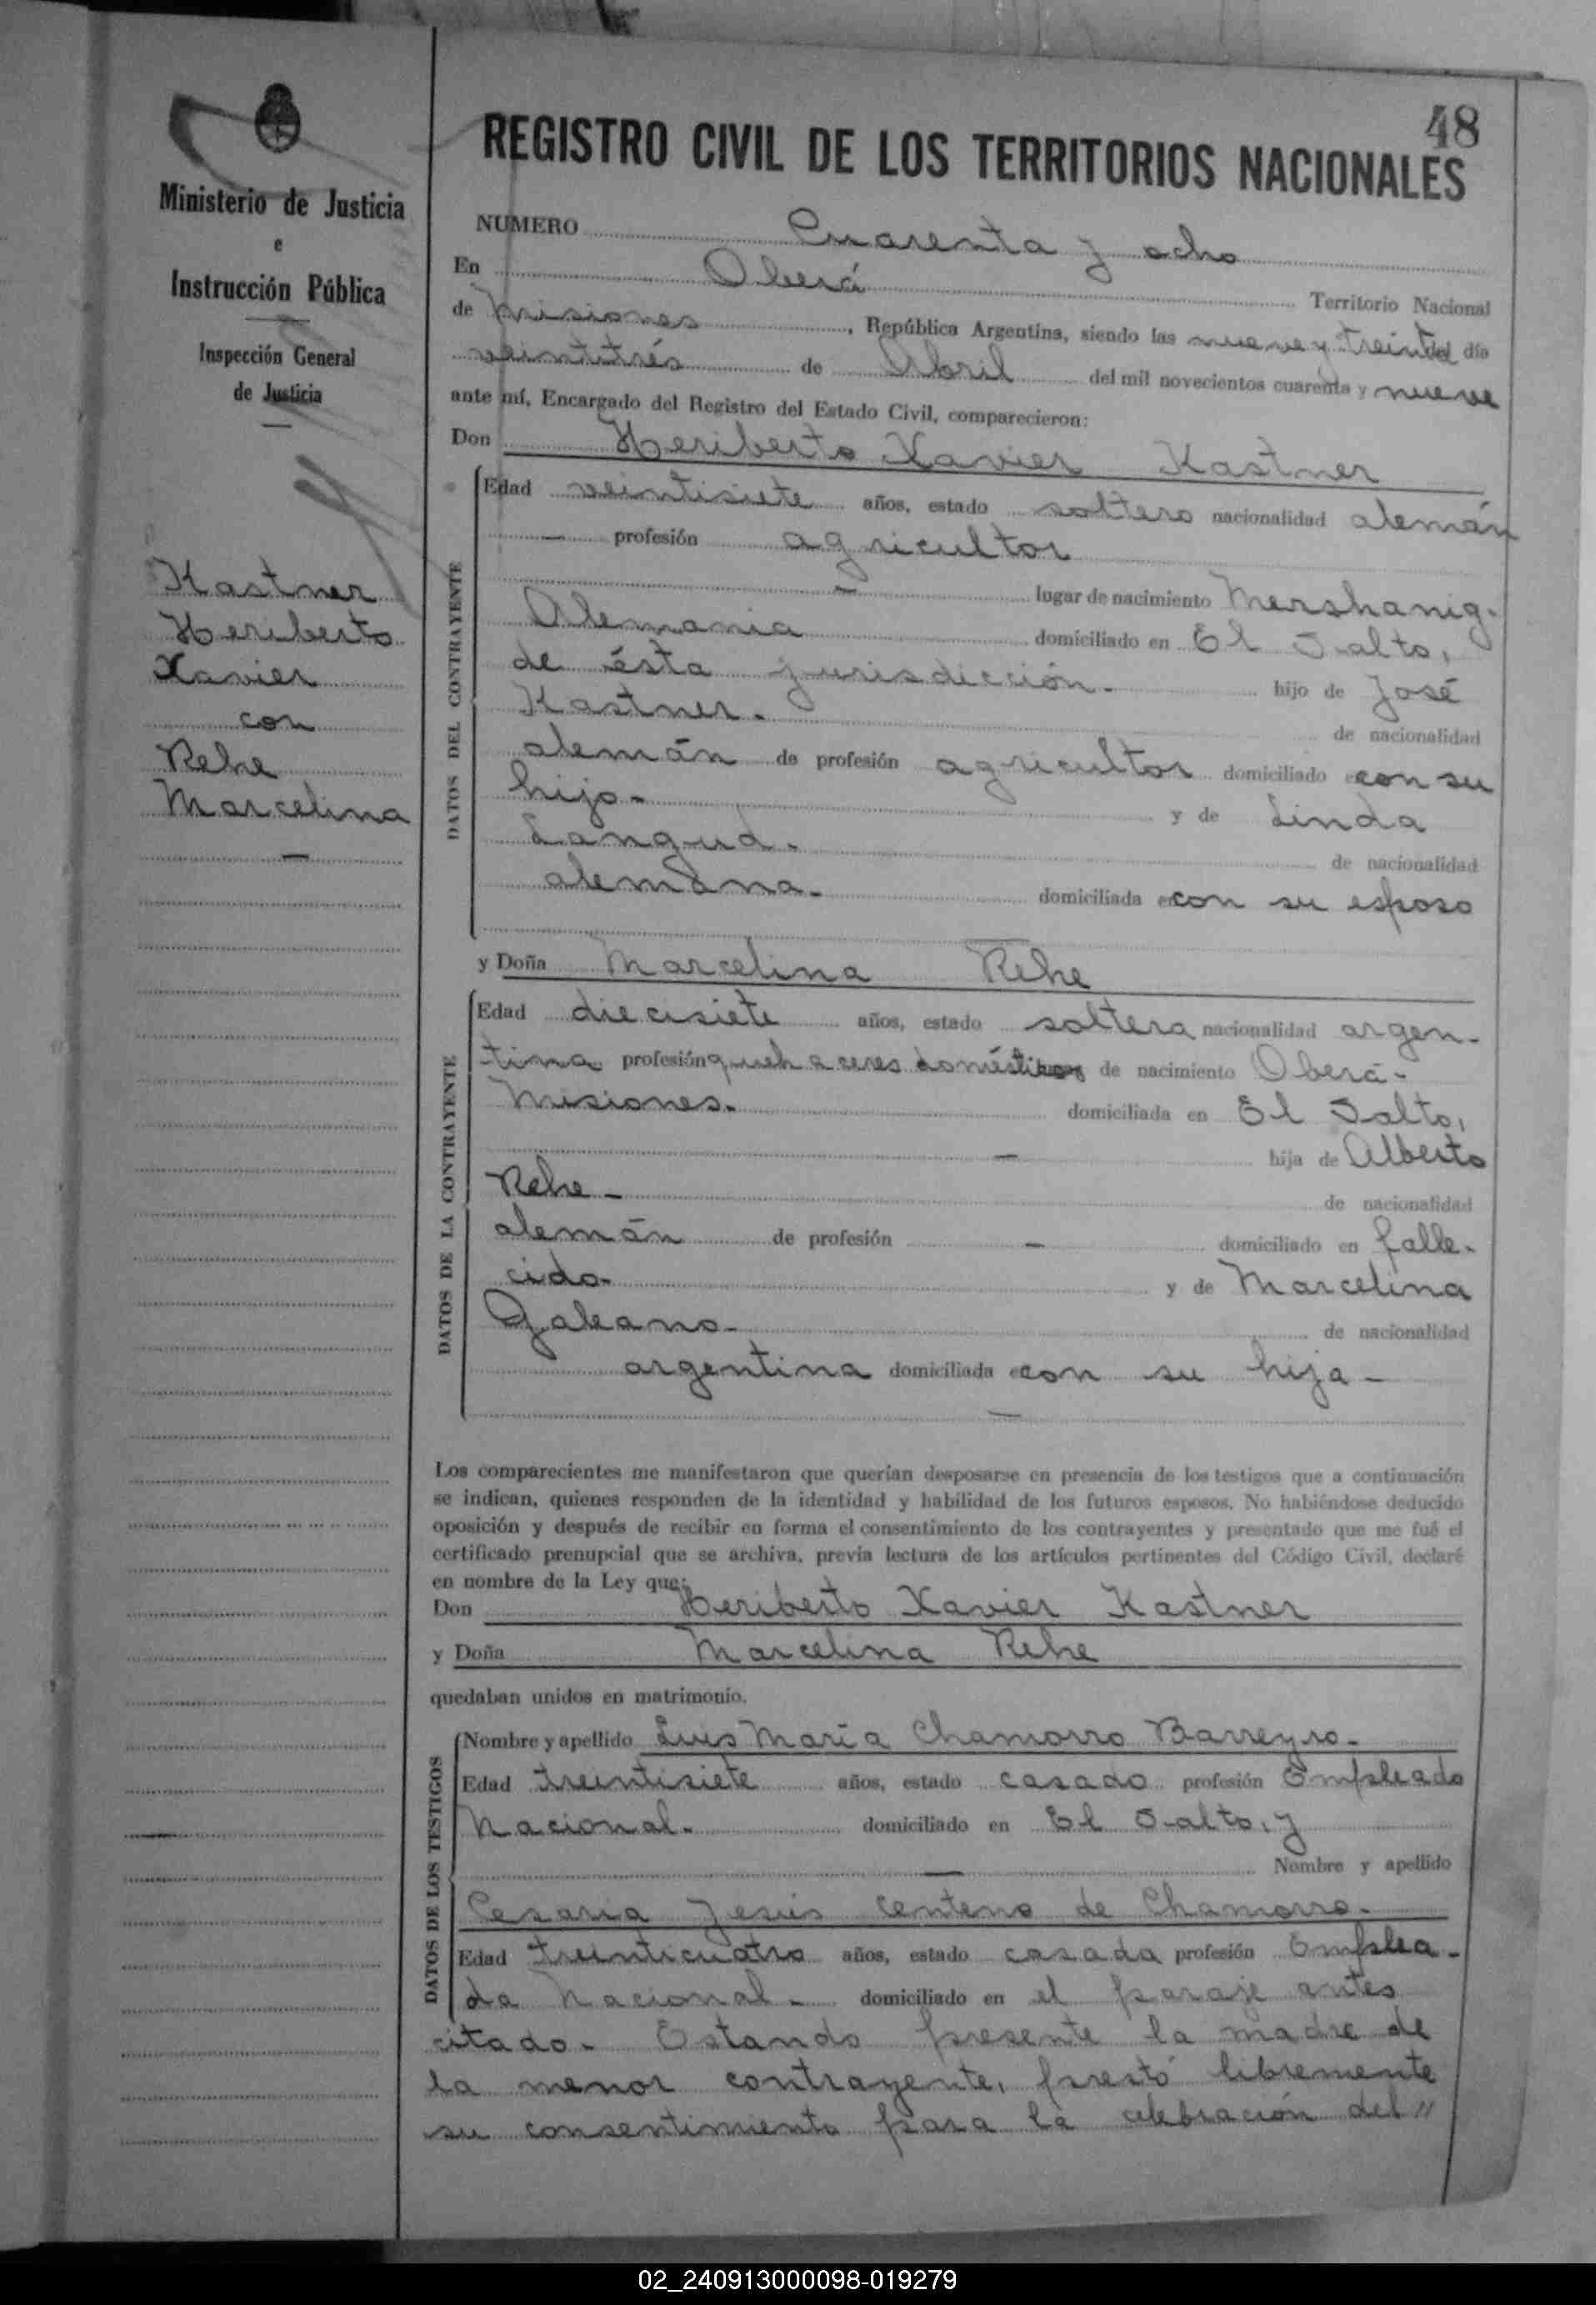 48
REGISTRO CIVIL DE LOS TERRITORIOS NACIONALES
Ministerio de Justicia
e
Instrucción Pública
Inspección General
de Justicia
Kastner
Heriberto
Xavier
con
Rehe
Marcelina
NUMERO Cuarenta y ocho
En Oberá Territorio Nacional
de Misiones, República Argentina, siendo las nueve y treinta del día
veintitrés de Abril del mil novecientos cuarenta y nueve
ante mí, Encargado del Registro del Estado Civil, comparecieron:
Don Heriberto Xavier Kastner
DATOS DEL CONTRAYENTE
Edad veintisiete años, estado soltero nacionalidad alemán
— profesión agricultor
— lugar de nacimiento Mershanig-
Alemania domiciliado en El Salto,
de ésta jurisdicción.- hijo de José
Kastner.- de nacionalidad
alemán de profesión agricultor domiciliado con su
hijo- y de Linda
Langud.- de nacionalidad
alemana.- domiciliada con su esposo
y Doña Marcelina Rehe
DATOS DE LA CONTRAYENTE
Edad diecisiete años, estado soltera nacionalidad argen-
tina profesión quehaceres domésticos de nacimiento Oberá-
Misiones.- domiciliada en El Salto,
— hija de Alberto
Rehe - de nacionalidad
alemán de profesión — domiciliado en falle-
cido- y de Marcelina
Galeano- de nacionalidad
argentina domiciliada con su hija -
—
Los comparecientes me manifestaron que querían desposarse en presencia de los testigos que a continuación
se indican, quienes responden de la identidad y habilidad de los futuros esposos. No habiéndose deducido
oposición y después de recibir en forma el consentimiento de los contrayentes y presentado que me fué el
certificado prenupcial que se archiva, previa lectura de los artículos pertinentes del Código Civil, declaré
en nombre de la Ley que:
Don Heriberto Xavier Kastner
y Doña Marcelina Rehe
quedaban unidos en matrimonio.
DATOS DE LOS TESTIGOS
Nombre y apellido Luis María Chamorro Barreyro-
Edad treintisiete años, estado casado profesión Empleado
Nacional.- domiciliado en El Salto, y
— Nombre y apellido
Cesaria Jesús Centeno de Chamorro.-
Edad treinticuatro años, estado casada profesión Emplea-
da Nacional.- domiciliado en el paraje antes
citado.- Estando presente la madre de
la menor contrayente, prestó libremente
su consentimiento para la celebración del //
02_240913000098-019279